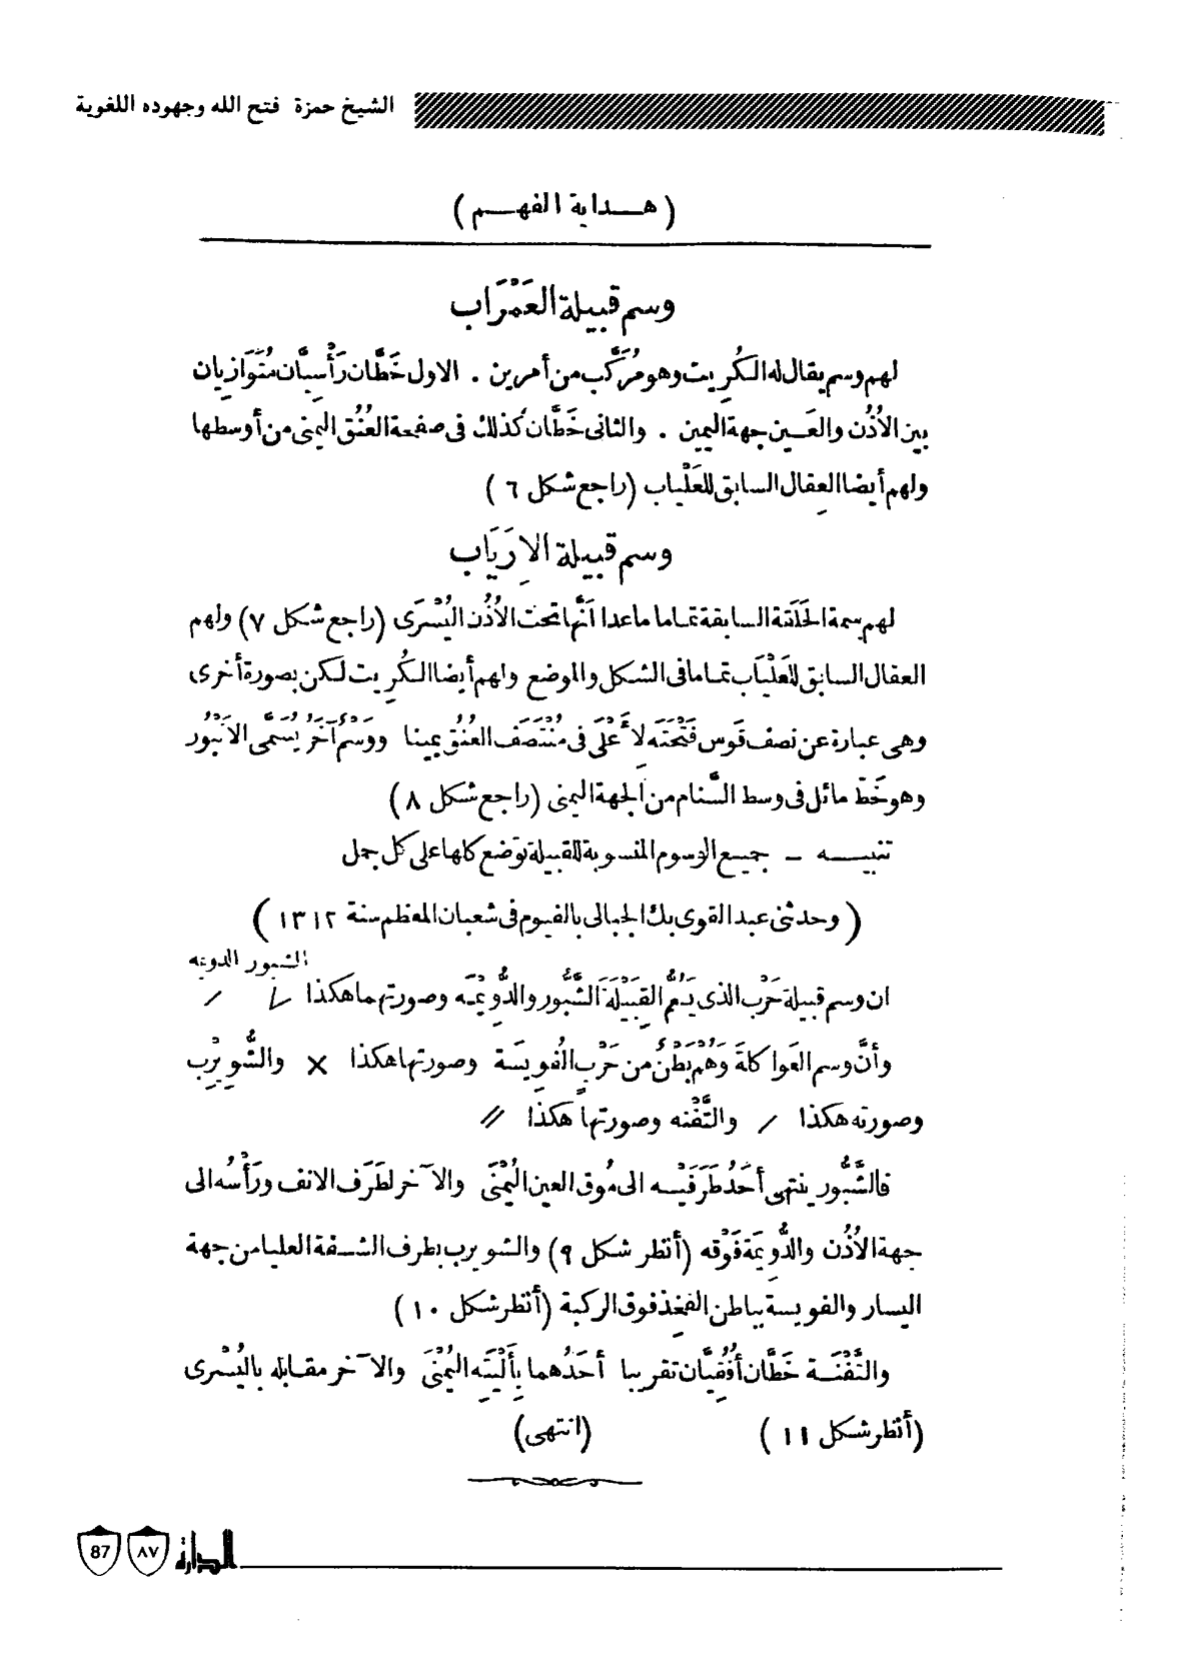 الشيخ حمزة فتح الله وجهوده اللغوية
( هـداية الفهـم )
وسم قبيلة العَمْرَاب
لهم وسم يقال له الكُرِيت وهو مُرَكَّب من أمرين . الاول خَطَّان رَأْسِيَّان مُتَوَازيان
بين الأُذُن والعَـين جهة اليمين . والثانى خَطَّان كذلك فى صفحة العُنُق اليمنى من أوسطها
ولهم أيضا العِقال السابق للعَلْياب (راجع شكل ٦ )
وسم قبيلة الاِرَيَاب
لهم سمة الحَلَقة السابقة تماما ماعدا أنَّها تحت الأُذُن اليُسْرَى (راجع شكل ٧) ولهم
العقال السابق للعَلْيَاب تماما فى الشكل والموضع ولهم أيضا الكُرِيت لكن بصورة أخرى
وهى عبارة عن نصف قَوس فَتْحَته لِأَعْلَى فى مُنْتَصَف العُنُق يمينا ووَسْمٌ آخَرُ يُسَمَّى الانْبُور
وهو خَطّ مائل فى وسط السَّنام من الجهة اليمنى (راجع شكل ٨)
تنبيـــه – جميع الوسوم المنسوبة للقبيلة توضع كلها على كل جمل
( وحدثنى عبد القوى بك الجبالى بالفيوم فى شعبان المعظم سنة ١٣١٢ )
الشبور الدويمه
ان وسم قبيلة حَرْب الذى يَعُمُّ القَبِيلَةَ الشَّبُّور والدُّوِيمَه وصورتهما هكذا
وأنَّ وسم العَواكلَةَ وَهُم بَطْنٌ من حَرْب الفُوِيسَة وصورتها هكذا × والشُّوِيرِب
وصورته هكذا / والثَّفْنه وصورتها هكذا //
فالشَّبُّور ينتهى أَحَدُ طَرَفَيْـه الى مُوق العين اليُمْنَى والآخر لطَرَف الانف ورَأْسُه الى
جهة الأُذُن والدُّوِيمَة فَوْقه (أنظر شكل ٩) والشويرب بطرف الشـفة العليا من جهة
اليسار والفويسة بباطن الفخِذ فوق الركبة (أنظر شكل ١٠ )
والثَّفْنَـة خَطَّان أُفُقِيَّان تقريبا أحَدُهما بأَلْيَتِه اليُمْنَى والآخر مقابله باليُسْرى
(أنظر شكل ١١ ) (انتهى)
87 ٨٧ الدارة